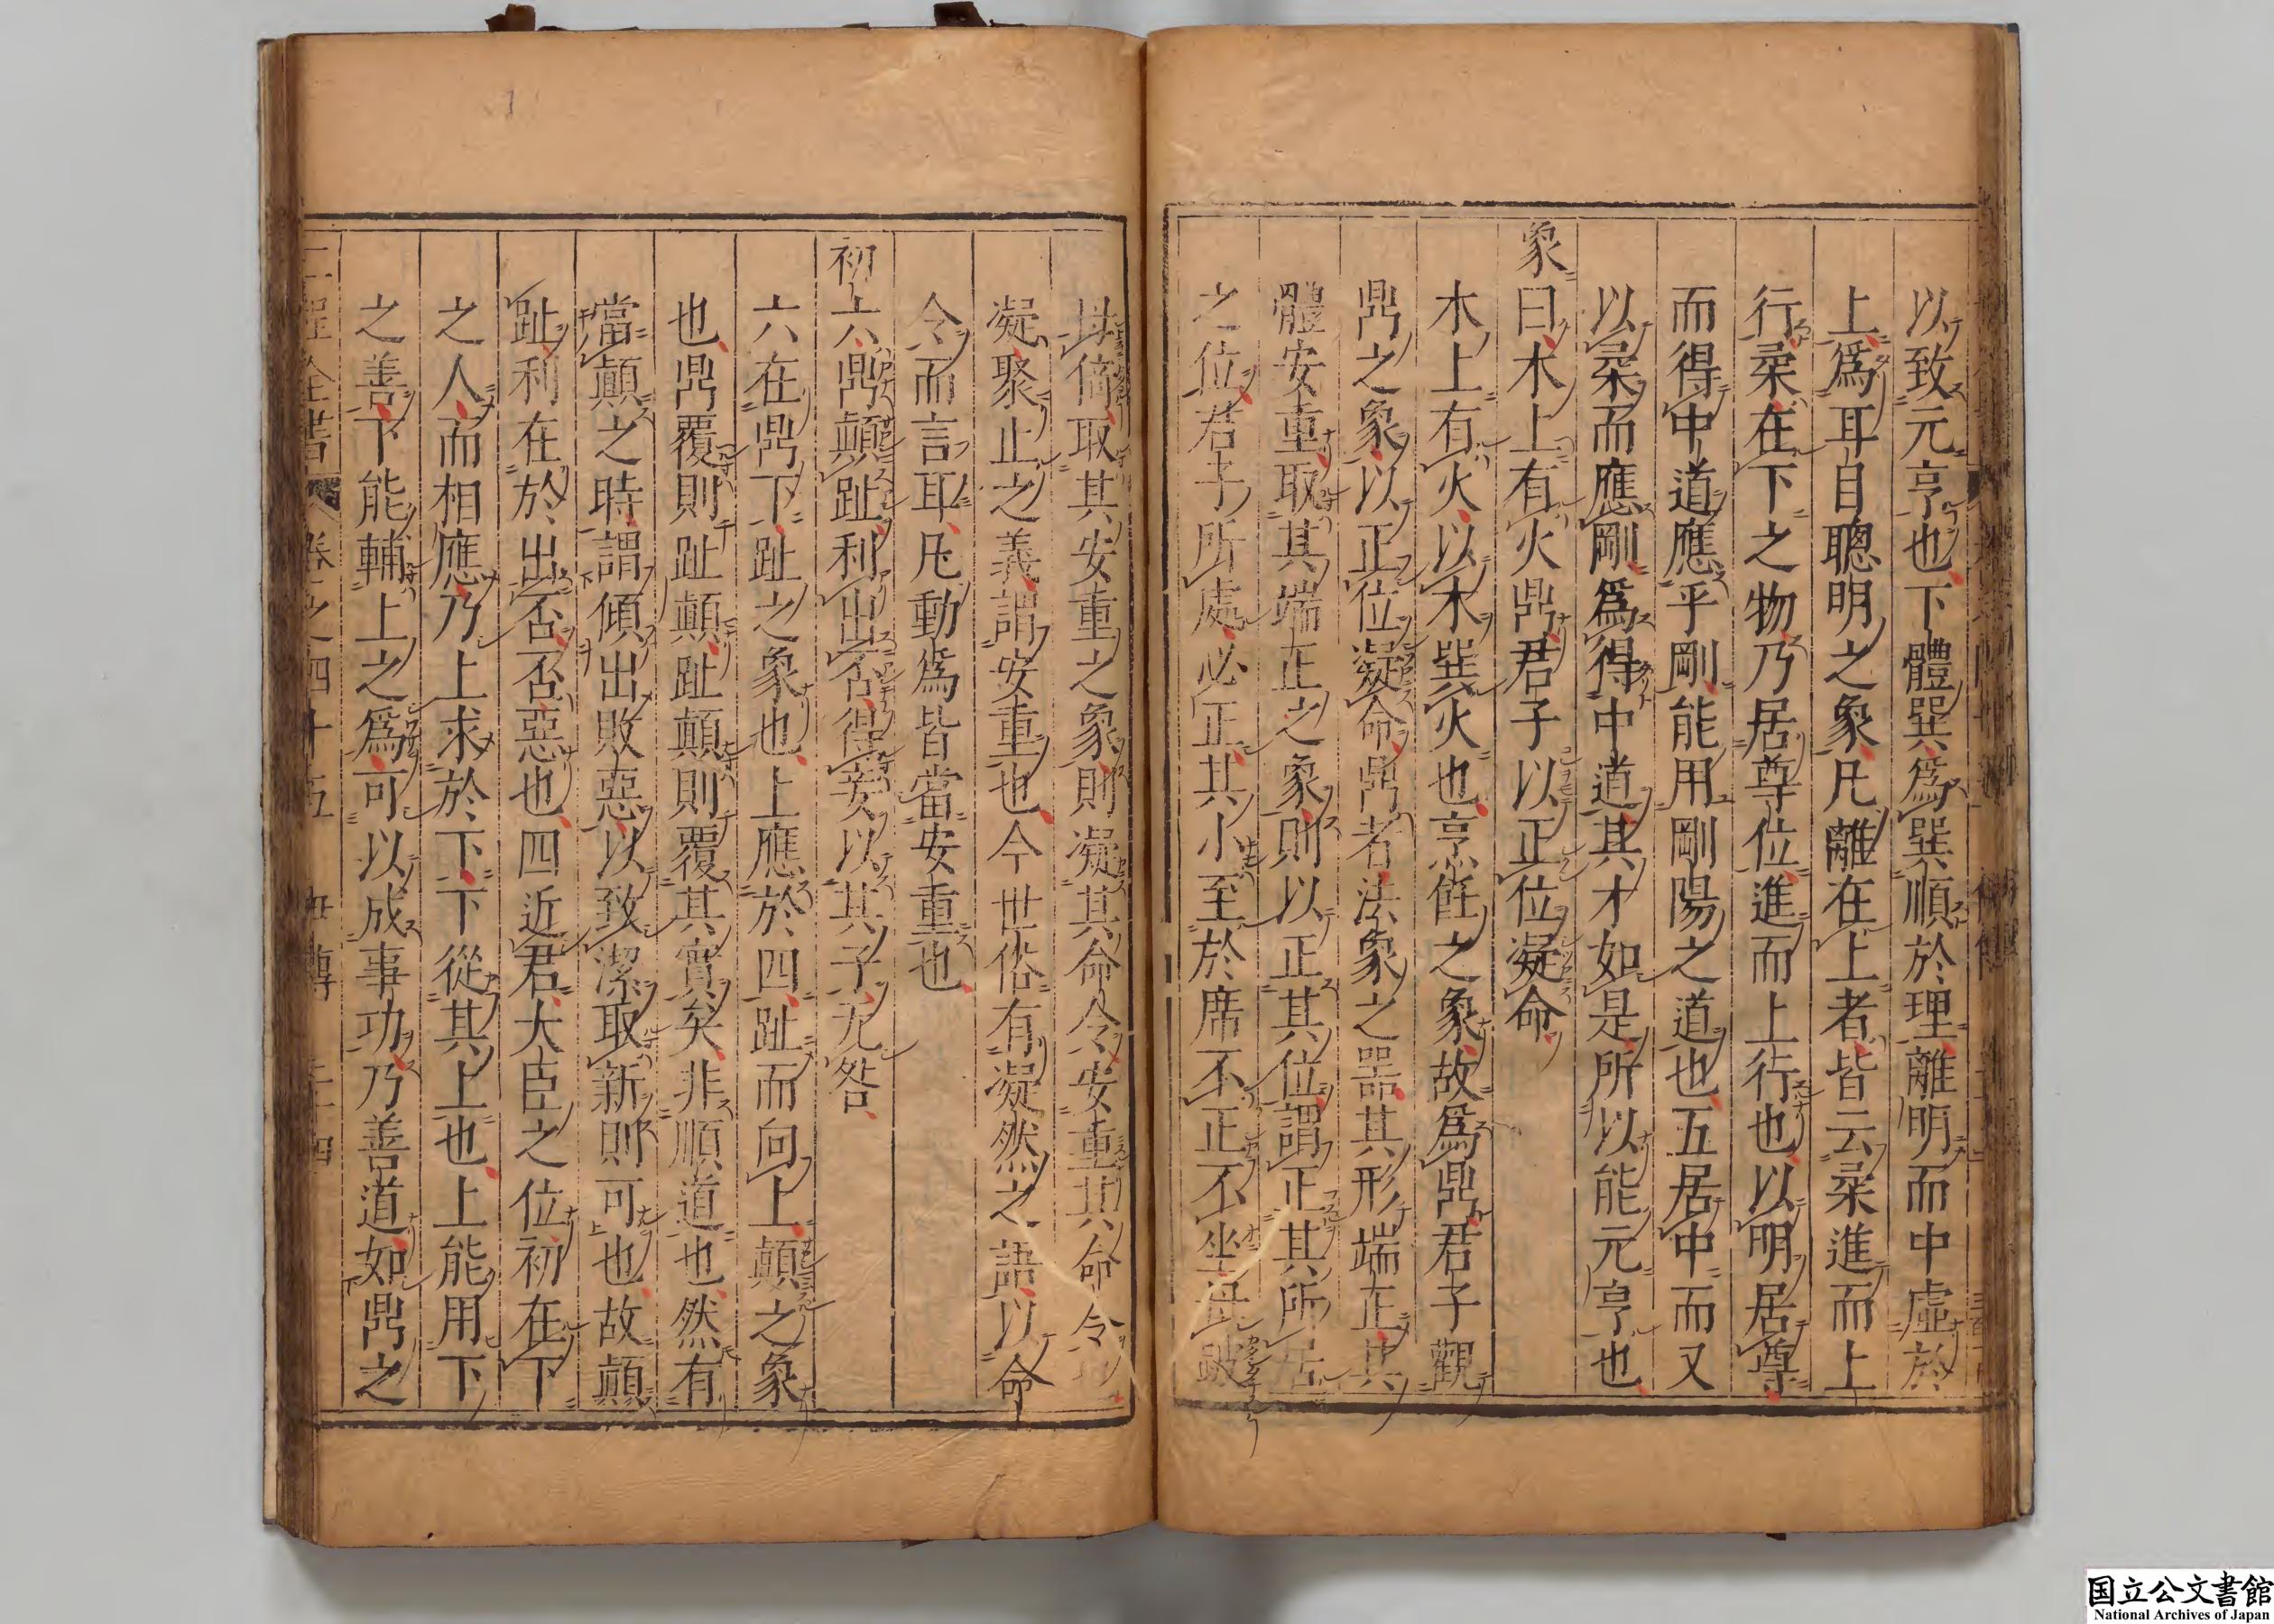 以致元亨也下體巽爲巽順於理離明而中虛於
上爲耳目聰明之象凡離在上者皆云柔進而上
行柔在下之物乃居尊位進而上行也以明居尊
而得中道應乎剛能用剛陽之道也五居中而又
以柔而應剛爲得中道其才如是所以能元亨也
象曰木上有火鼎君子以正位凝命
木上有火以木巽火也烹飪之象故爲鼎君子觀
鼎之象以正位凝命鼎者法象之器其形端正其
體安重取其端正之象則以正其位謂正其所居
之位君子所處必正其小至於席不正不坐毋跛
毋倚取其安重之象則凝其命令安重其命令
凝聚止之義謂安重也今世俗有凝然之語以命
令而言耳凡動爲皆當安重也
初六鼎顛趾利出否得妾以其子无咎
六在鼎下趾之象也上應於四趾而向上顛之象
也鼎覆則趾顛趾顛則覆其實矣非順道也然有
當顛之時謂傾出敗惡以致潔取新則可也故顛
趾利在於出否否惡也四近君大臣之位初在下
之人而相應乃上求於下下從其上也上能用下
之善下能輔上之爲可以成事功乃善道如鼎之
二程全書 卷之四十五
国立公文書館
National Archives of Japan